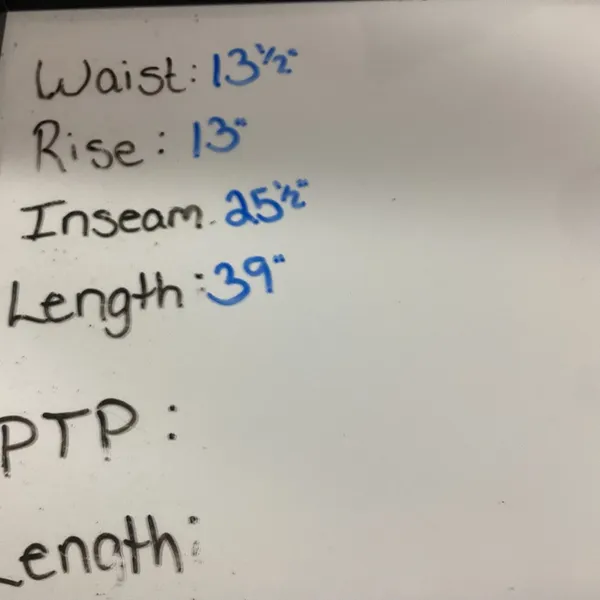 Waist: 13½"
Rise: 13"
Inseam. 25½"
Length: 39"
PTP:
Length: